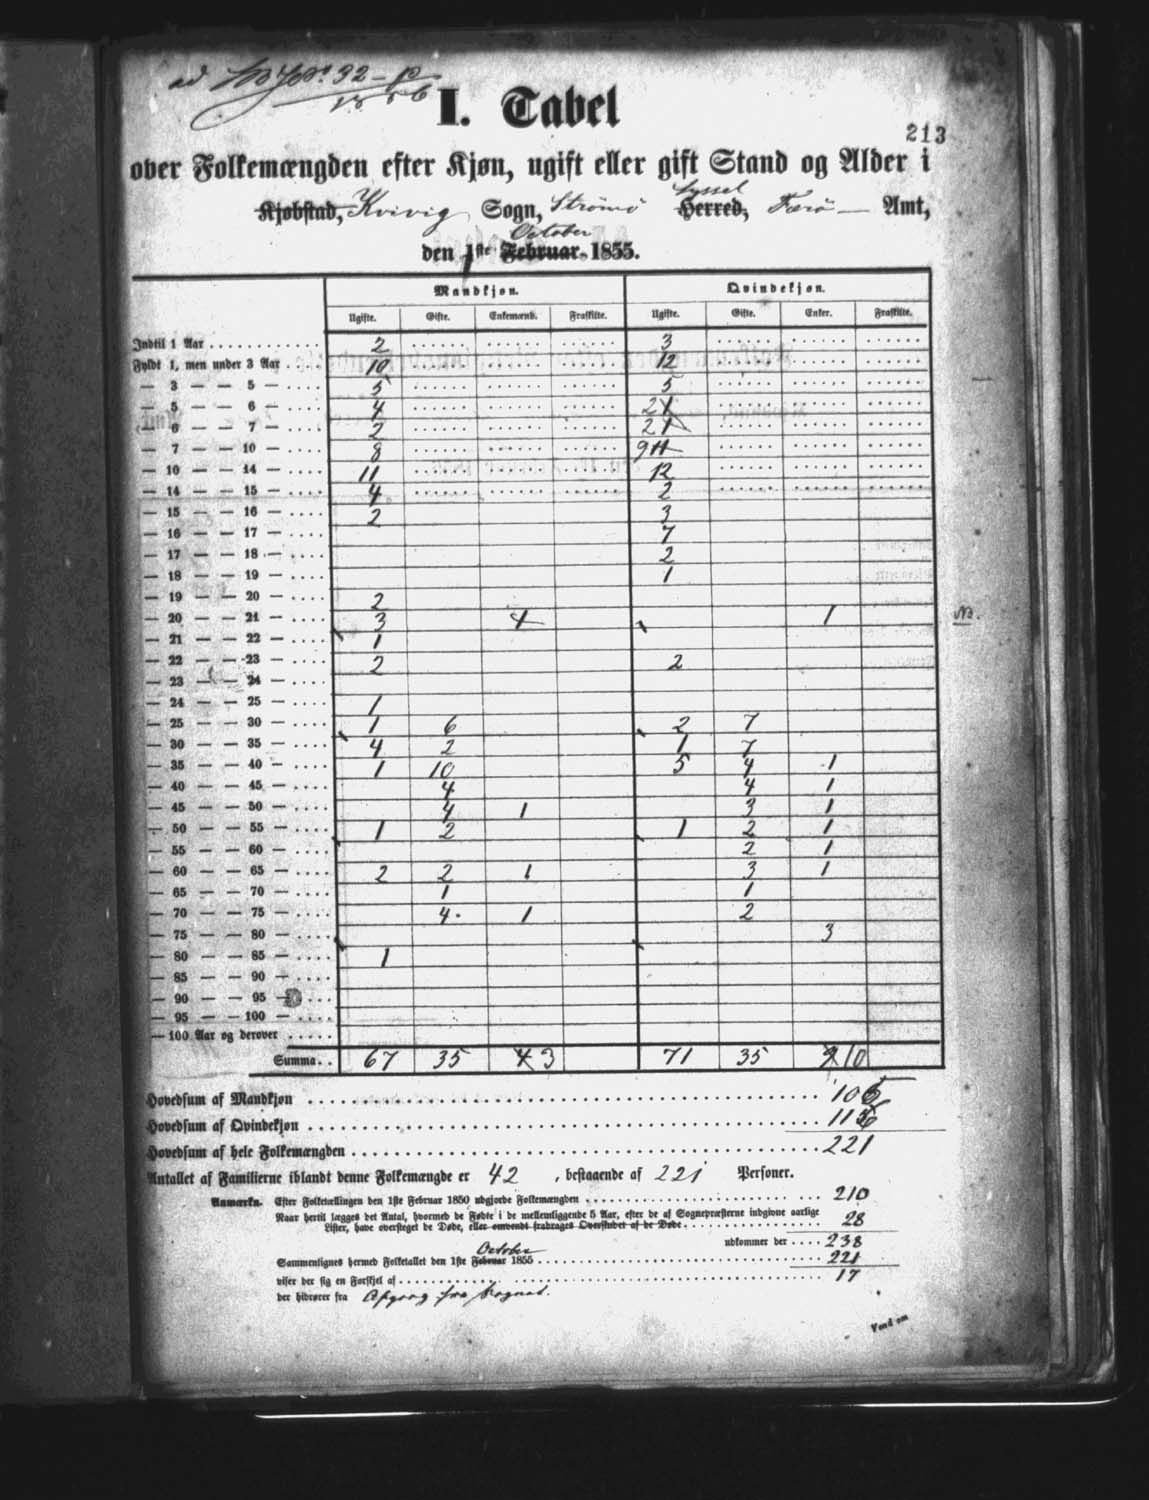 ad
1856
I. Tabel
213
over Folkemængden efter Kjøn, ugift eller gift Stand og Alder i
Syssel
Kjøbstad, Kvivig Sogn, Strömö Herred, Færö — Amt,
October
den 1ste Februar 1855.
Mandkjøn. Qvindekjøn.
Ugifte. Gifte. Enkemænd. Fraskilte. Ugifte. Gifte. Enker. Fraskilte.
Indtil 1 Aar 2 3
Fyldt 1, men under 3 Aar 10 12
— 3 — — 5 — 5 5
— 5 — — 6 — 4 2 1
— 6 — — 7 — 2 2 1
— 7 — — 10 — 8 9 11
— 10 — — 14 — 11 12
— 14 — — 15 — 4 2
— 15 — — 16 — 2 3
— 16 — — 17 — 7
— 17 — — 18 — 2
— 18 — — 19 — 1
— 19 — — 20 — 2
— 20 — — 21 — 3 1 NB.
— 21 — — 22 — 1
— 22 — — 23 — 2 2
— 23 — — 24 —
— 24 — — 25 — 1
— 25 — — 30 — 1 6 2 7
— 30 — — 35 — 4 2 1 7
— 35 — — 40 — 1 10 5 4 1
— 40 — — 45 — 4 4 1
— 45 — — 50 — 4 1 3 1
— 50 — — 55 — 1 2 1 2 1
— 55 — — 60 — 2 1
— 60 — — 65 — 2 2 1 3 1
— 65 — — 70 — 1 1
— 70 — — 75 — 4 1 2
— 75 — — 80 — 3
— 80 — — 85 — 1
— 85 — — 90 —
— 90 — — 95 —
— 95 — — 100 —
— 100 Aar og derover
Summa 67 35 4 3 71 35 9 10
Hovedsum af Mandkjøn 105
Hovedsum af Qvindekjøn 116
Hovedsum af hele Folkemængden 221
Antallet af Familierne iblandt denne Folkemængde er 42, bestaaende af 221 Personer.
Anmærkn. Efter Folketællingen den 1ste Februar 1850 udgjorde Folkemængden 210
Naar hertil lægges det Antal, hvormed de Fødte i de mellemliggende 5 Aar, efter de af Sognepræsterne indgivne aarlige
Lister, have oversteget de Døde, eller omvendt fradrages Overskudet af de Døde 28
udkommer der 238
October
Sammenlignes hermed Folketallet den 1ste Februar 1855 221
viser der sig en Forskjel af 17
der hidrører fra Afgang fra Sognet.
Vend om